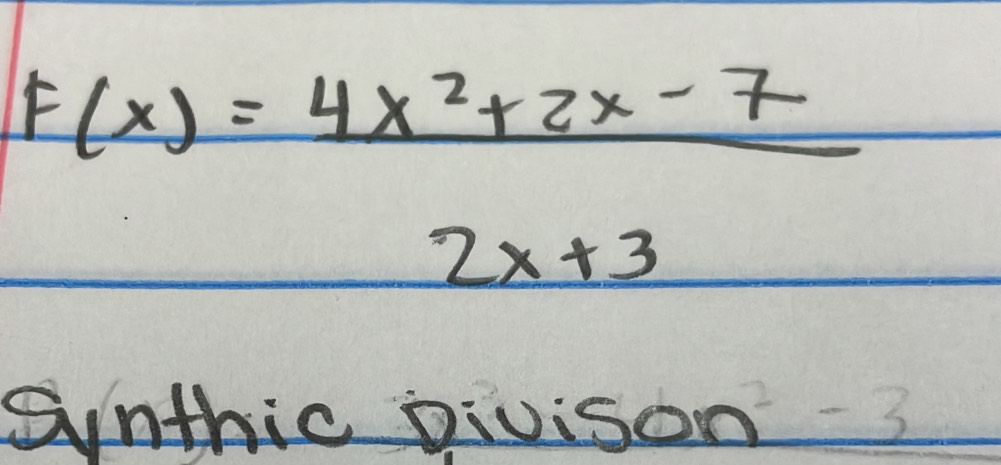 F(x) = 4x²+2x-7
2x+3
Synthic Divison